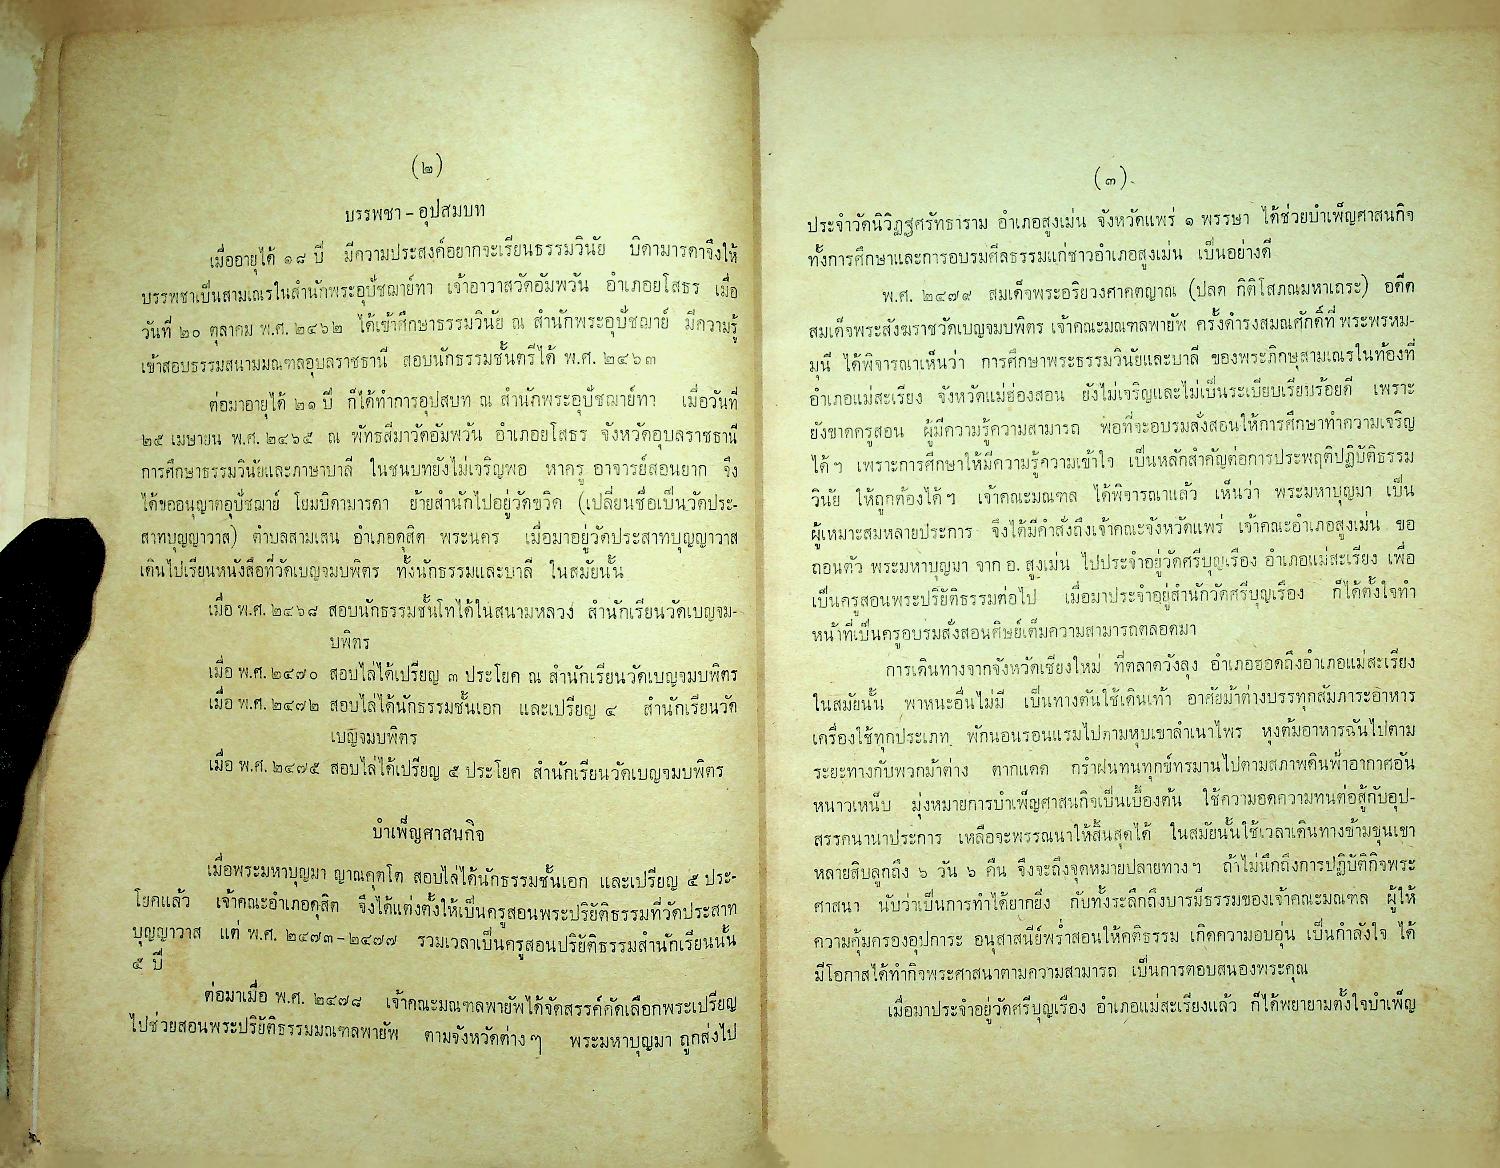 (๒)
บรรพชา - อุปสมบท
เมื่ออายุได้ ๑๘ ปี มีความประสงค์อยากจะเรียนธรรมวินัย บิดามารดาจึงให้
บรรพชาเป็นสามเณรในสำนักพระอุปัชฌาย์ทา เจ้าอาวาสวัดอัมพวัน อำเภอยโสธร เมื่อ
วันที่ ๒๐ ตุลาคม พ.ศ. ๒๔๖๒ ได้เข้าศึกษาธรรมวินัย ณ สำนักพระอุปัชฌาย์ มีความรู้
เข้าสอบธรรมสนามมณฑลอุบลราชธานี สอบนักธรรมชั้นตรีได้ พ.ศ. ๒๔๖๓
ต่อมาอายุได้ ๒๑ ปี ก็ได้ทำการอุปสบท ณ สำนักพระอุปัชฌาย์ทา เมื่อวันที่
๒๕ เมษายน พ.ศ. ๒๔๖๕ ณ พัทธสีมาวัดอัมพวัน อำเภอยโสธร จังหวัดอุบลราชธานี
การศึกษาธรรมวินัยและภาษาบาลี ในชนบทยังไม่เจริญพอ หาครู อาจารย์สอนยาก จึง
ได้ขออนุญาตอุปัชฌาย์ โยมบิดามารดา ย้ายสำนักไปอยู่วัดขวิด (เปลี่ยนชื่อเป็นวัดประ-
สาทบุญญาวาส) ตำบลสามเสน อำเภอดุสิต พระนคร เมื่อมาอยู่วัดประสาทบุญญาวาส
เดินไปเรียนหนังสือที่วัดเบญจมบพิตร ทั้งนักธรรมและบาลี ในสมัยนั้น
เมื่อ พ.ศ. ๒๔๖๘ สอบนักธรรมชั้นโทได้ในสนามหลวง สำนักเรียนวัดเบญจม-
บพิตร
เมื่อ พ.ศ. ๒๔๗๐ สอบไล่ได้เปรียญ ๓ ประโยค ณ สำนักเรียนวัดเบญจมบพิตร
เมื่อ พ.ศ. ๒๔๗๒ สอบไล่ได้นักธรรมชั้นเอก และเปรียญ ๔ สำนักเรียนวัด
เบญจมบพิตร
เมื่อ พ.ศ. ๒๔๗๕ สอบไล่ได้เปรียญ ๕ ประโยค สำนักเรียนวัดเบญจมบพิตร
บำเพ็ญศาสนกิจ
เมื่อพระมหาบุญมา ญาณคุตโต สอบไล่ได้นักธรรมชั้นเอก และเปรียญ ๕ ประ-
โยคแล้ว เจ้าคณะอำเภอดุสิต จึงได้แต่งตั้งให้เป็นครูสอนพระปริยัติธรรมที่วัดประสาท
บุญญาวาส แต่ พ.ศ. ๒๔๗๓-๒๔๗๗ รวมเวลาเป็นครูสอนปริยัติธรรมสำนักเรียนนั้น
๕ ปี
ต่อมาเมื่อ พ.ศ. ๒๔๗๘ เจ้าคณะมณฑลพายัพได้จัดสรรค์คัดเลือกพระเปรียญ
ไปช่วยสอนพระปริยัติธรรมมณฑลพายัพ ตามจังหวัดต่าง ๆ พระมหาบุญมา ถูกส่งไป
(๓)
ประจำวัดนิวิฏฐศรัทธาราม อำเภอสูงเม่น จังหวัดแพร่ ๑ พรรษา ได้ช่วยบำเพ็ญศาสนกิจ
ทั้งการศึกษาและการอบรมศีลธรรมแก่ชาวอำเภอสูงเม่น เป็นอย่างดี
พ.ศ. ๒๔๗๙ สมเด็จพระอริยวงศาคตญาณ (ปลด กิติโสภณมหาเถระ) อดีต
สมเด็จพระสังฆราชวัดเบญจมบพิตร เจ้าคณะมณฑลพายัพ ครั้งดำรงสมณศักดิ์ที่ พระพรหม-
มุนี ได้พิจารณาเห็นว่า การศึกษาพระธรรมวินัยและบาลี ของพระภิกษุสามเณรในท้องที่
อำเภอแม่สะเรียง จังหวัดแม่ฮ่องสอน ยังไม่เจริญและไม่เป็นระเบียบเรียบร้อยดี เพราะ
ยังขาดครูสอน ผู้มีความรู้ความสามารถ พอที่จะอบรมสั่งสอนให้การศึกษาทำความเจริญ
ได้ ๆ เพราะการศึกษาให้มีความรู้ความเข้าใจ เป็นหลักสำคัญต่อการประพฤติปฏิบัติธรรม
วินัย ให้ถูกต้องได้ ๆ เจ้าคณะมณฑล ได้พิจารณาแล้ว เห็นว่า พระมหาบุญมา เป็น
ผู้เหมาะสมหลายประการ จึงได้มีคำสั่งถึงเจ้าคณะจังหวัดแพร่ เจ้าคณะอำเภอสูงเม่น ขอ
ถอนตัว พระมหาบุญมา จาก อ. สูงเม่น ไปประจำอยู่วัดศรีบุญเรือง อำเภอแม่สะเรียง เพื่อ
เป็นครูสอนพระปริยัติธรรมต่อไป เมื่อมาประจำอยู่สำนักวัดศรีบุญเรือง ก็ได้ตั้งใจทำ
หน้าที่เป็นครูอบรมสั่งสอนศิษย์เต็มความสามารถตลอดมา
การเดินทางจากจังหวัดเชียงใหม่ ที่ตลาดวังลุง อำเภอฮอดถึงอำเภอแม่สะเรียง
ในสมัยนั้น พาหนะอื่นไม่มี เป็นทางตันใช้เดินเท้า อาศัยม้าต่างบรรทุกสัมภาระอาหาร
เครื่องใช้ทุกประเภท พักนอนรอนแรมไปตามหุบเขาลำเนาไพร หุงต้มอาหารฉันไปตาม
ระยะทางกับพวกม้าต่าง ตากแดด กรำฝนทนทุกข์ทรมานไปตามสภาพดินฟ้าอากาศอัน
หนาวเหน็บ มุ่งหมายการบำเพ็ญศาสนกิจเป็นเบื้องต้น ใช้ความอดความทนต่อสู้กับอุป-
สรรคนานาประการ เหลือจะพรรณนาให้สิ้นสุดได้ ในสมัยนั้นใช้เวลาเดินทางข้ามขุนเขา
หลายสิบลูกถึง ๖ วัน ๖ คืน จึงจะถึงจุดหมายปลายทาง ๆ ถ้าไม่นึกถึงการปฏิบัติกิจพระ
ศาสนา นับว่าเป็นการทำได้ยากยิ่ง กับทั้งระลึกถึงบารมีธรรมของเจ้าคณะมณฑล ผู้ให้
ความคุ้มครองอุปการะ อนุสาสนีย์พร่ำสอนให้คติธรรม เกิดความอบอุ่น เป็นกำลังใจ ได้
มีโอกาสได้ทำกิจพระศาสนาตามความสามารถ เป็นการตอบสนองพระคุณ
เมื่อมาประจำอยู่วัดศรีบุญเรือง อำเภอแม่สะเรียงแล้ว ก็ได้พยายามตั้งใจบำเพ็ญ